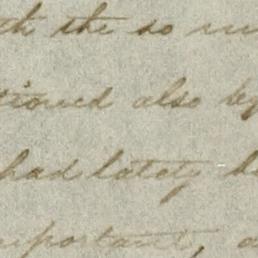 the so
tioned also
had lately
important,